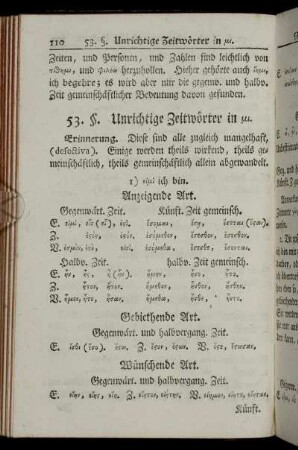 110 53. §. Unrichtige Zeitwörter in μι.
Zeiten, und Personen, und Zahlen sind leichtlich von
τίθημι, und herzuhollen. Hieher gehörte auch
ich begehre; es wird aber nur die gegenw. und halbv.
Zeit gemeinschäftlicher Bedeutung davon gefunden.
53. §. Unrichtige Zeitwörter in μι.
Erinnerung. Diese sind alle zugleich mangelhaft,
(defectiva). Einige werden theils wirkend, theils ge
meinschäftlich, theils gemeinschäftlich allein abgewandelt.
1) εἰμὶ ich bin.
Anzeigende Art.
Gegenwärt. Zeit. Künft. Zeit gemeinsch.
E. εἰμὶ, εἶς (εἶ), ἐςί. ἔσομαι, ἔσῃ, ἔσεται (ἔςαι).
Z. ἐςὸν, ἐςόν. ἐσόμεθον, ἔσεσθον, ἔσεσθον.
V. ἐσμὲν, ἐςὲ, εἰσί. ἐσόμεθα, ἔσεσθε, ἔσονται.
Halbv. Zeit. halbv. Zeit gemeinsch.
E. ἦν, ἦς, ἦ (ἦν). ἤμην, ἦσο, ἦτο.
Z. ἦτον, ἤτην. ἤμεθον, ἦσθον, ἤσθην.
V. ἦμεν, ἦτε, ἦσαν. ἤμεθα, ἦσθε, ἦντο.
Gebiethende Art.
Gegenwärt. und halbvergang. Zeit.
E. ἔςω. Z. ἔςον, ἔςων. V. ἔςε, ἔςωσαν.
Wünschende Art.
Gegenwärt. und halbvergang. Zeit.
E. εἴην, εἴης, εἴη. Z. εἴητον, εἰήτην. V. εἴημεν, εἴητε, εἴησαν.
Künft.